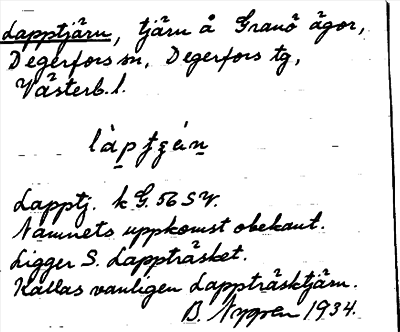 Lapptjärn, tjärn å Granö ägor,
Degerfors sn, Degerfors tg,
Västerb. l.
làptʒæ̀n
Lapptj. k G. 56 SV.
Namnets uppkomst obekant.
Ligger S. Lappträsket.
Kallas vanligen Lappträsktjärn.
B. Nygren 1934.